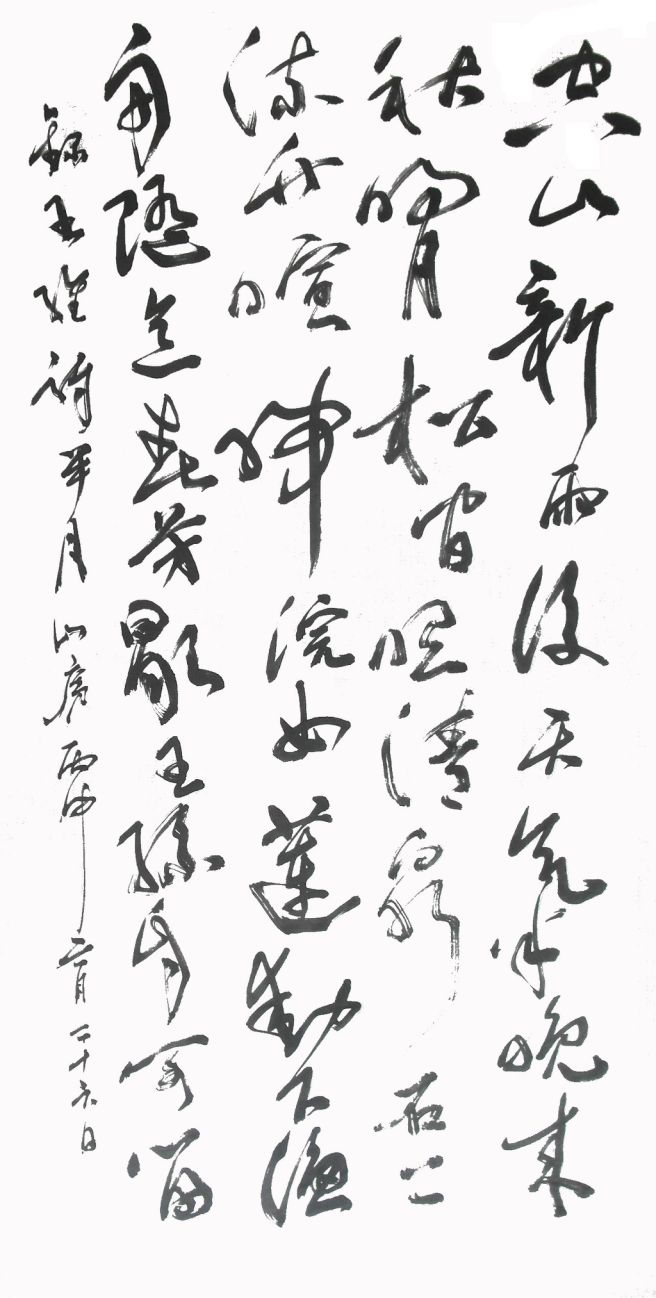 空山新雨後天氣晚來
秋明月松間照清泉石上
流竹喧歸浣女蓮動下漁
舟隨意春芳歇王孫自可留
錄王維詩半月山房丙申二月二十六日